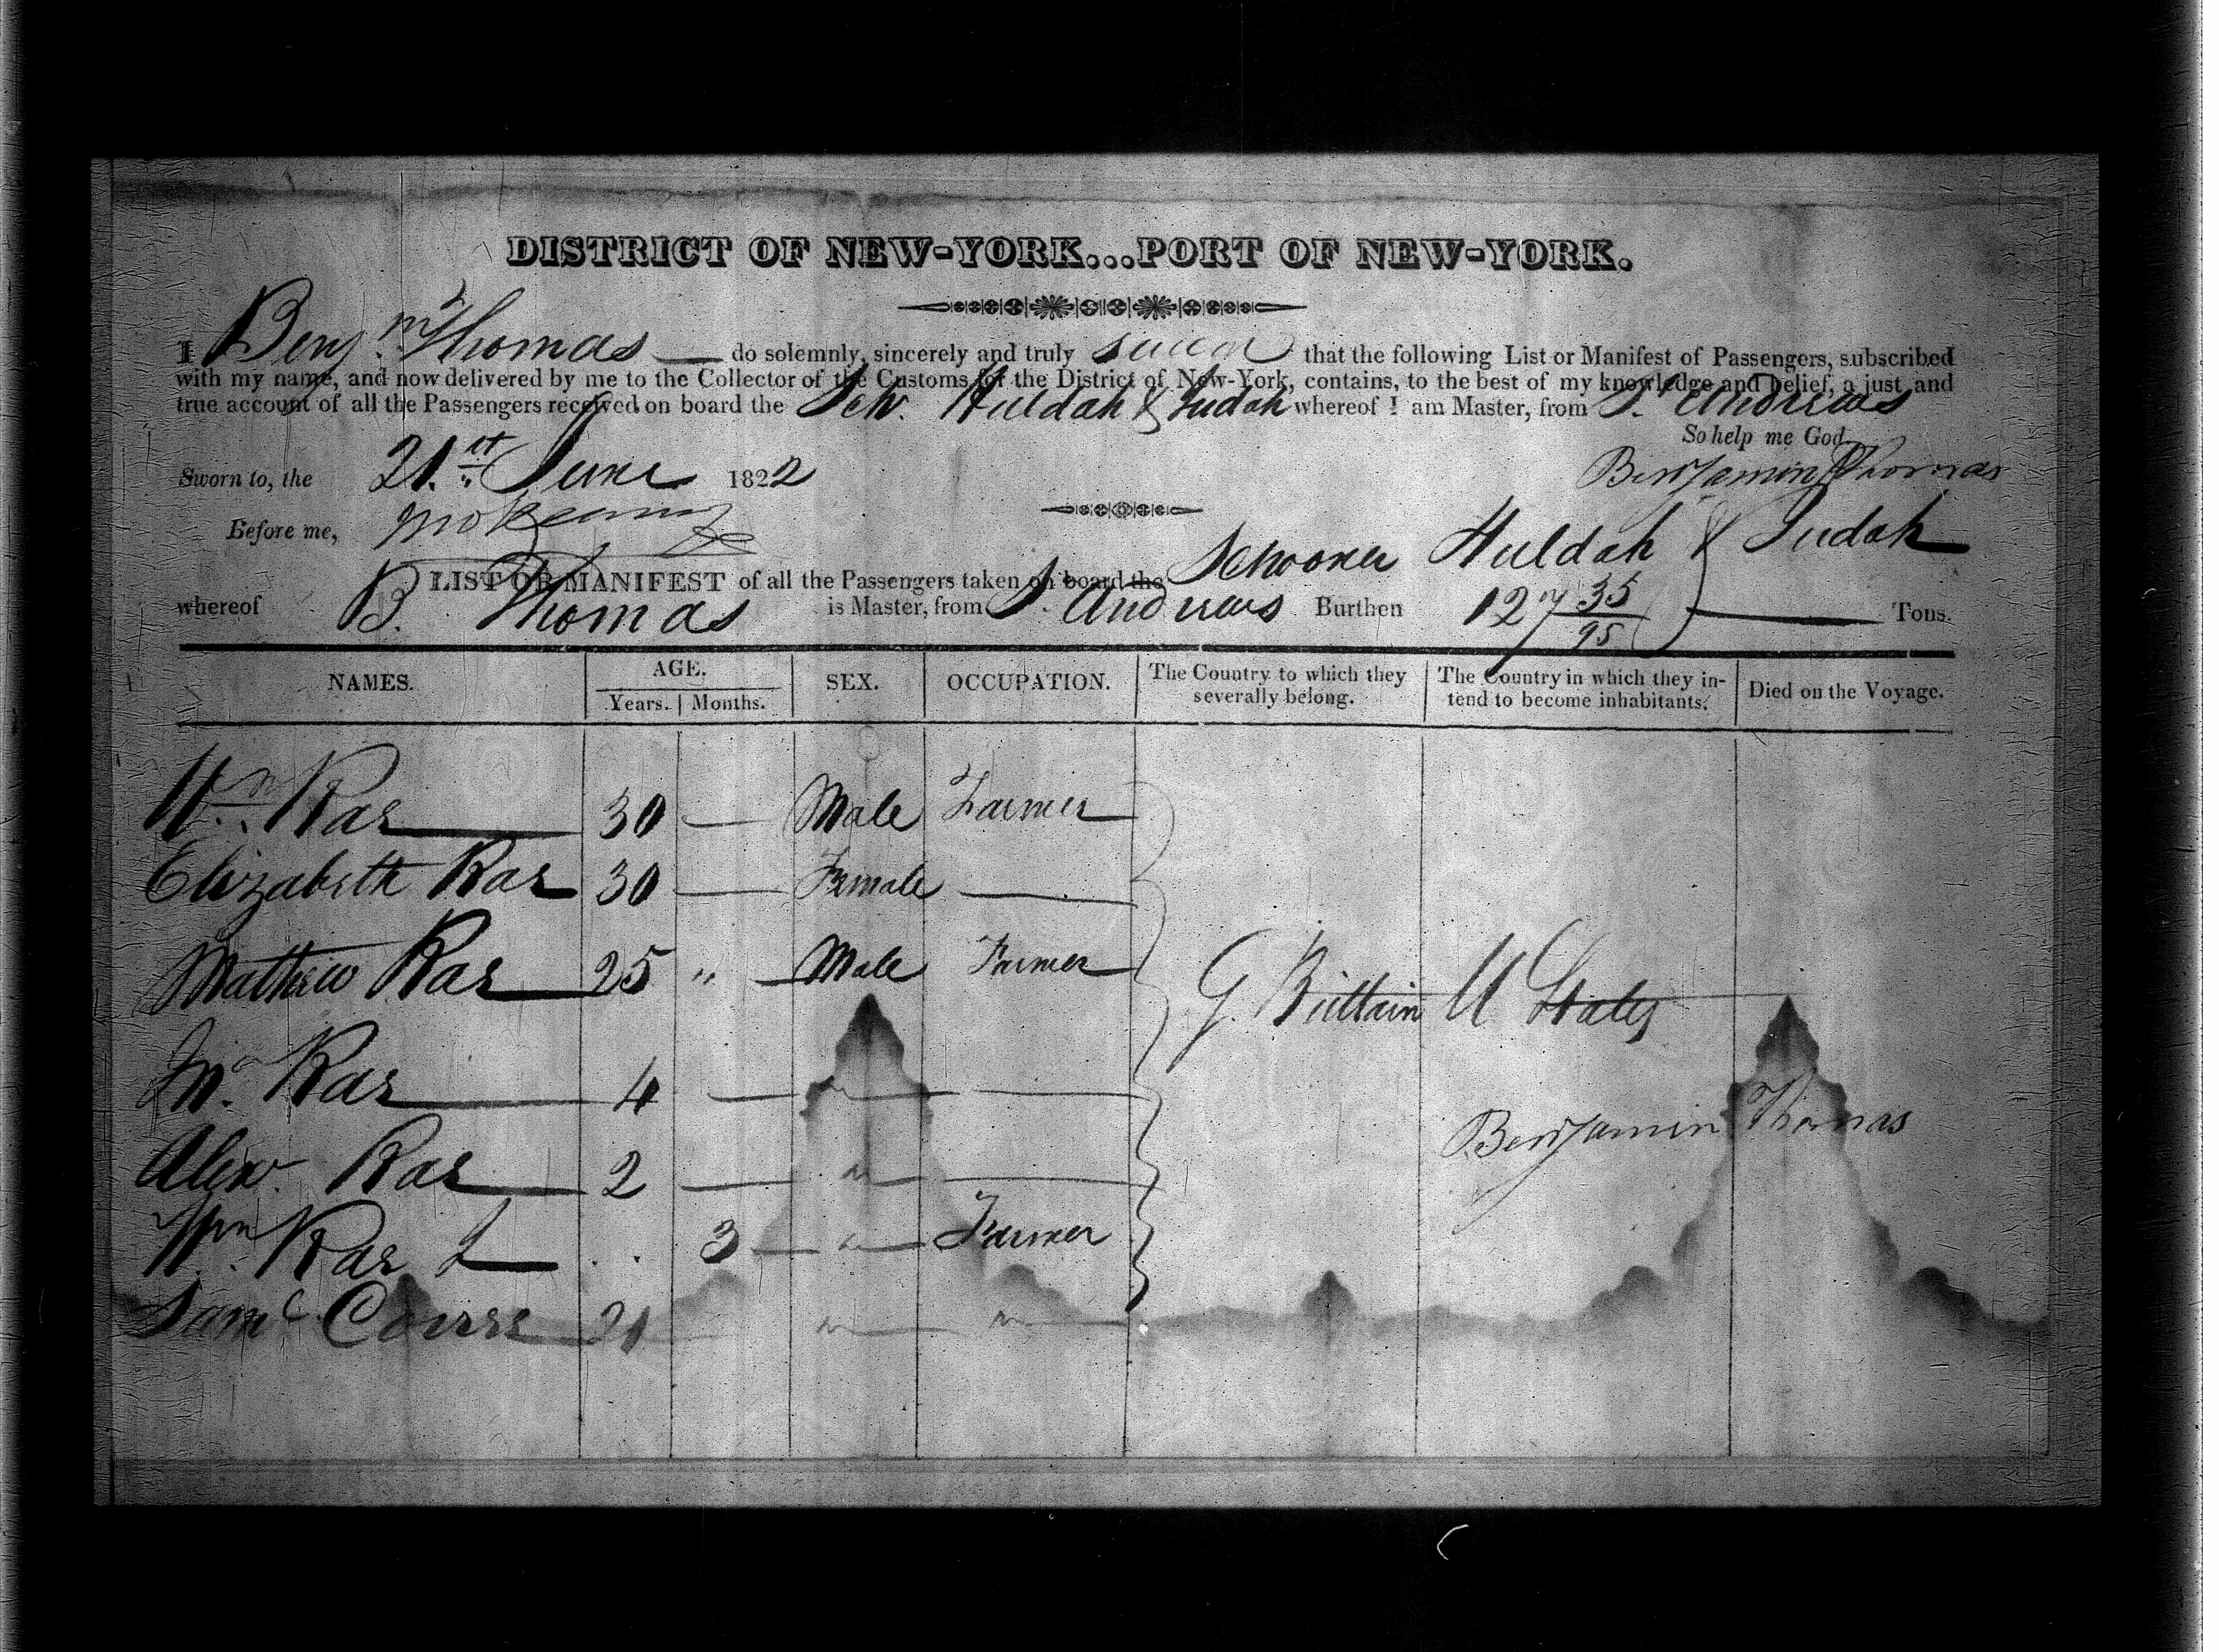 DISTRICT OF NEW-YORK...PORT OF NEW-YORK.
I Benjn. Thomas — do solemnly, sincerely and truly swear that the following List or Manifest of Passengers, subscribed
with my name, and now delivered by me to the Collector of the Customs for the District of New-York, contains, to the best of my knowledge and belief, a just and
true account of all the Passengers received on board the Sch. Huldah & Judah whereof I am Master, from St. Andrews
So help me God.
Sworn to, the 21.st June 1822 Benjamin Thomas
Before me,
LIST OR MANIFEST of all the Passengers taken on board the Schooner Huldah & Judah
whereof B. Thomas is Master, from St. Andrews Burthen 127 35/95 Tons.
NAMES. AGE. Years. Months. SEX. OCCUPATION. The Country to which they severally belong. The Country in which they intend to become inhabitants. Died on the Voyage.
Wm. Rae 30 — Male Farmer
Elizabeth Rae 30 — Female —
Mathew Rae 25 " Male Farmer
G. Brittain U States
Rae 4 — " —
Benjamin Thomas
Alexr. Rae 2 — " —
Wm. Rae 3 " Farmer
Saml. 21 " "